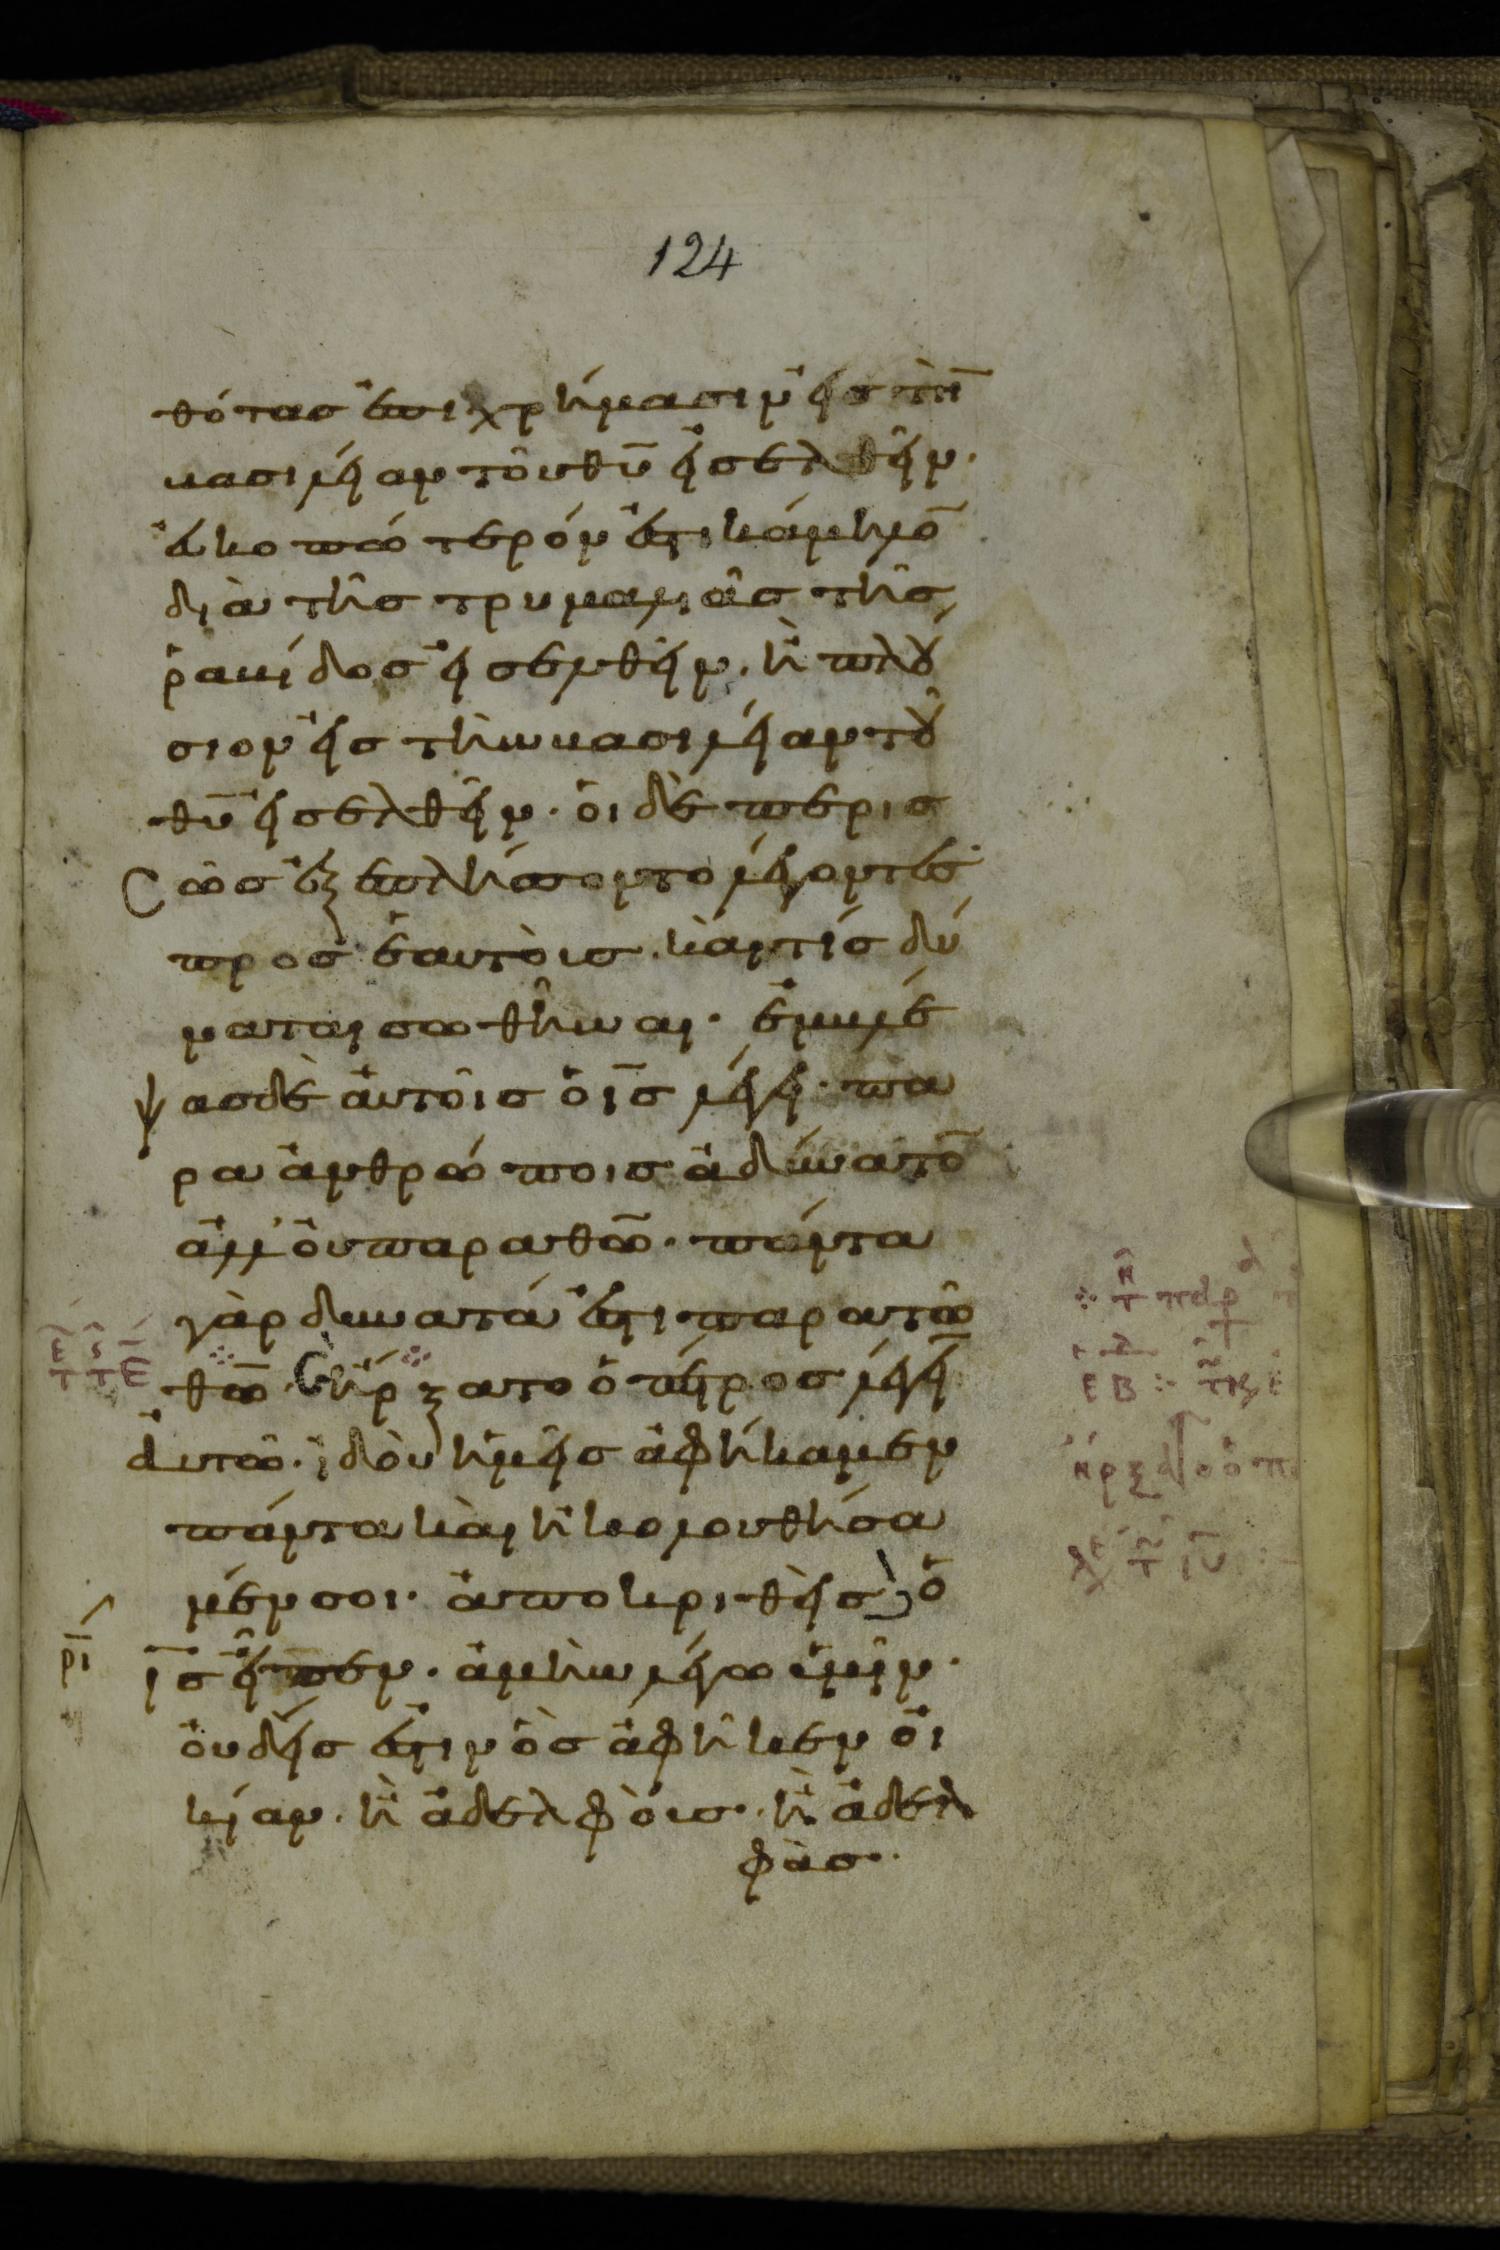 124
θότας ἐπιχρήμασιν εἰς τὴ̄
βασιλείαν τοῦ θῦ εἰσελθεῖν.
ἐυκοπώτερόν ἐστι κάμηλο̄
διὰ τῆς τρυμαλιᾶς τῆς
ῥαφίδος εἰσελθεῖν. ἢ πλού
σιον εἰς τὴν βασιλείαν τοῦ
θῦ εἰσελθεῖν. ὁι δὲ περισ
σῶς ἐξεπλήσσοντο λέγοντες
προς ἑαυτοὺς. καὶ τίς δύ
ναται σωθῆναι. ἐμβλέ
ψας δὲ ἀυτοῖς ὁ ῑς λέγει. πα
ρα ἀνθρώποις ἀδύνατο̄
ἀλλ' ὀυ παρα θῶ. πάντα
γὰρ δυνατά ἐστι παρα τῶ
θῶ. ἤρξατο ὁ πέτρος λέγειν
ἀυτῶ. ἰδοὺ ἡμεῖς ἀφήκαμεν
πάντα καὶ ἠκολουθήσα
μέν σοι. ἀποκριθεὶς ὁ
ρῑ
ῑς εἶπεν. ἀμὴν λέγω ὑμῖν.
ὀυδείς ἐστιν ὃς ἀφῆκεν ὀι
κίαν. ἢ ἀδελφοὺς. ἢ ἀδελ
φὰς.
ἤρξατο ὁ π